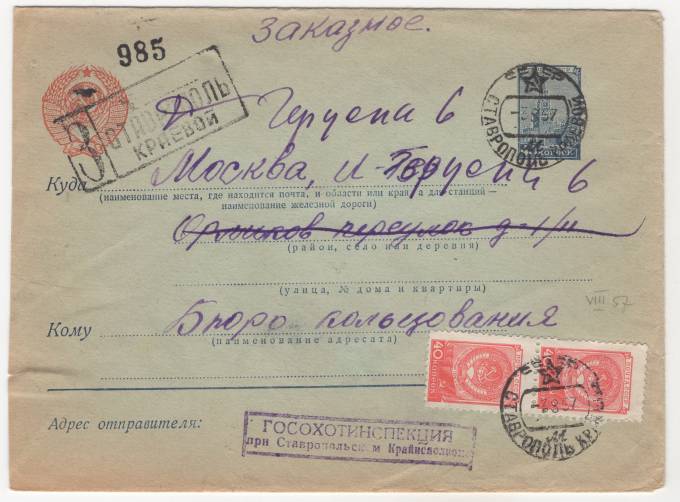 Заказное.
985
З СТАВРОПОЛЬ
КРАЕВОЙ
Герцена 6
Куда Москва, Герцена 6
(наименование места, где находится почта, и области или края, а для станций —
наименование железной дороги)
переулок д. 1/11
(район, село или деревня)
(улица, № дома и квартиры)
VIII 57
Кому Бюро кольцевания
(наименование адресата)
Адрес отправителя:
ГОСОХОТИНСПЕКЦИЯ
при Ставропольском Крайисполкоме
СТАВРОПОЛЬ
40
40
СТАВРОПОЛЬ